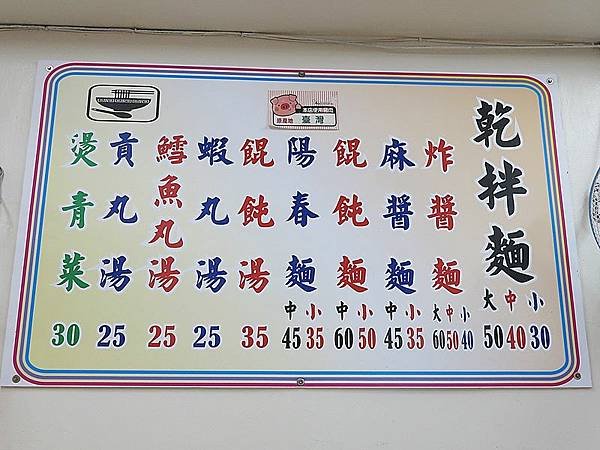 乾拌麵 大中小 50 40 30
炸醬麵 大中小 60 50 40
麻醬麵 中小 45 35
餛飩麵 中小 60 50
陽春麵 中小 45 35
餛飩湯 35
蝦丸湯 25
鱈魚丸湯 25
貢丸湯 25
燙青菜 30
本店使用豬肉
原產地 臺灣